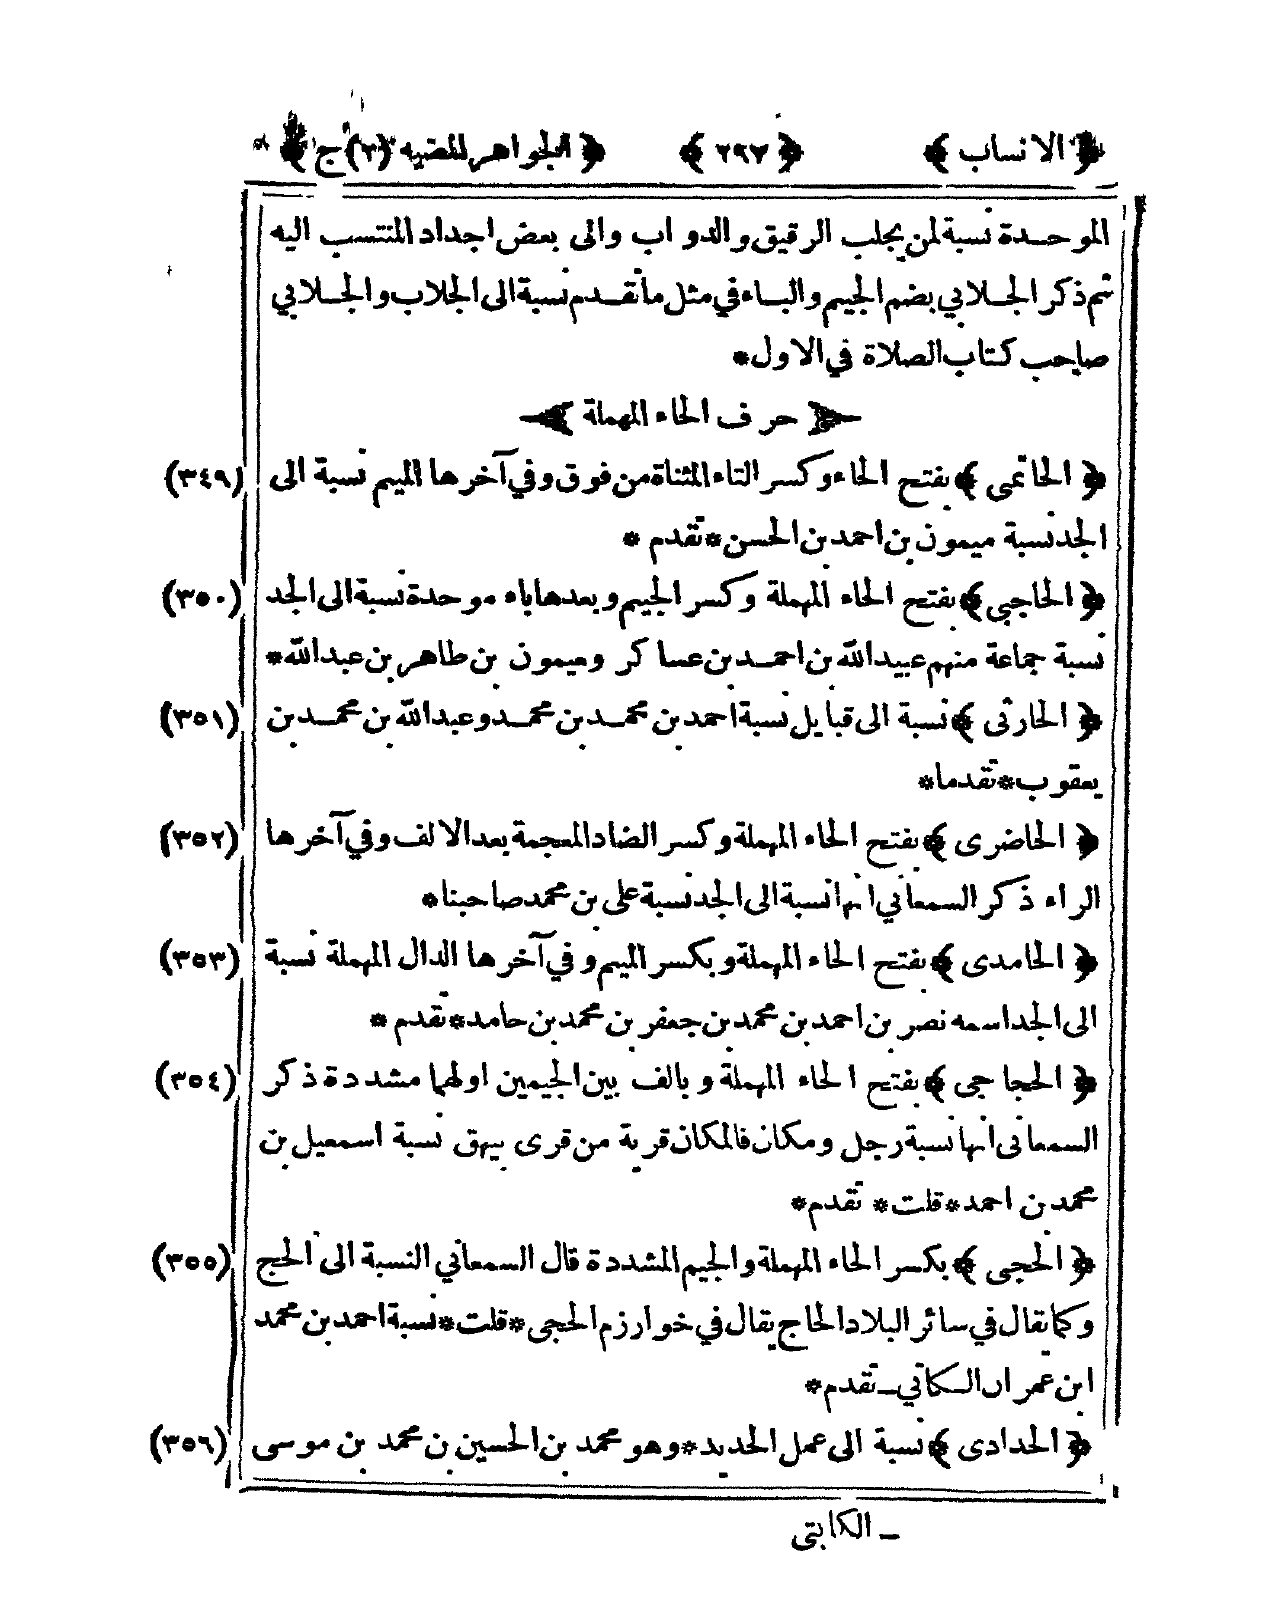 ﴿ الانساب ﴾ ﴿ ٢٩٧ ﴾ ﴿ الجواهر المضيه (٢) ج ﴾
الموحدة نسبة لمن يجلب الرقيق والدواب والى بعض اجداد المنتسب اليه
ثم ذكر الجلابي بضم الجيم والباء في مثل ما تقدم نسبة الى الجلاب والجلابي
صاحب كتاب الصلاة في الاول *
﴿ حرف الحاء المهملة ﴾
﴿ الحاتمى ﴾ بفتح الحاء وكسر التاء المثناة من فوق وفي آخرها الميم نسبة الى (٣٤٩)
الجد نسبة ميمون بن احمد بن الحسن * تقدم *
﴿ الحاجبي ﴾ بفتح الحاء المهملة وكسر الجيم وبعدها باء موحدة نسبة الى الجد (٣٥٠)
نسبة جماعة منهم عبيد الله بن احمد بن عساكر وميمون بن طاهر بن عبد الله *
﴿ الحارثى ﴾ نسبة الى قبايل نسبة احمد بن محمد بن محمد وعبد الله بن محمد بن (٣٥١)
يعقوب * تقدما *
﴿ الحاضرى ﴾ بفتح الحاء المهملة وكسر الضاد المعجمة بعد الالف وفي آخرها (٣٥٢)
الراء ذكر السمعاني انها نسبة الى الجد نسبة على بن محمد صاحبنا *
﴿ الحامدى ﴾ بفتح الحاء المهملة وبكسر الميم وفي آخرها الدال المهملة نسبة (٣٥٣)
الى الجد اسمه نصر بن احمد بن محمد بن جعفر بن محمد بن حامد * تقدم *
﴿ الحجاجى ﴾ بفتح الحاء المهملة وبالف بين الجيمين اولهما مشددة ذكر (٣٥٤)
السمعانى انها نسبة رجل ومكان فالمكان قرية من قرى بيهق نسبة اسمعيل بن
محمد بن احمد * قلت * تقدم *
﴿ الحجى ﴾ بكسر الحاء المهملة والجيم المشددة قال السمعاني النسبة الى الحج (٣٥٥)
وكما يقال في سائر البلاد الحاج يقال في خوارزم الحجى * قلت * نسبة احمد بن محمد
ابن عمران الكاتي ـ تقدم *
﴿ الحدادى ﴾ نسبة الى عمل الحديد * وهو محمد بن الحسين بن محمد بن موسى (٣٥٦)
ـ الكابتى